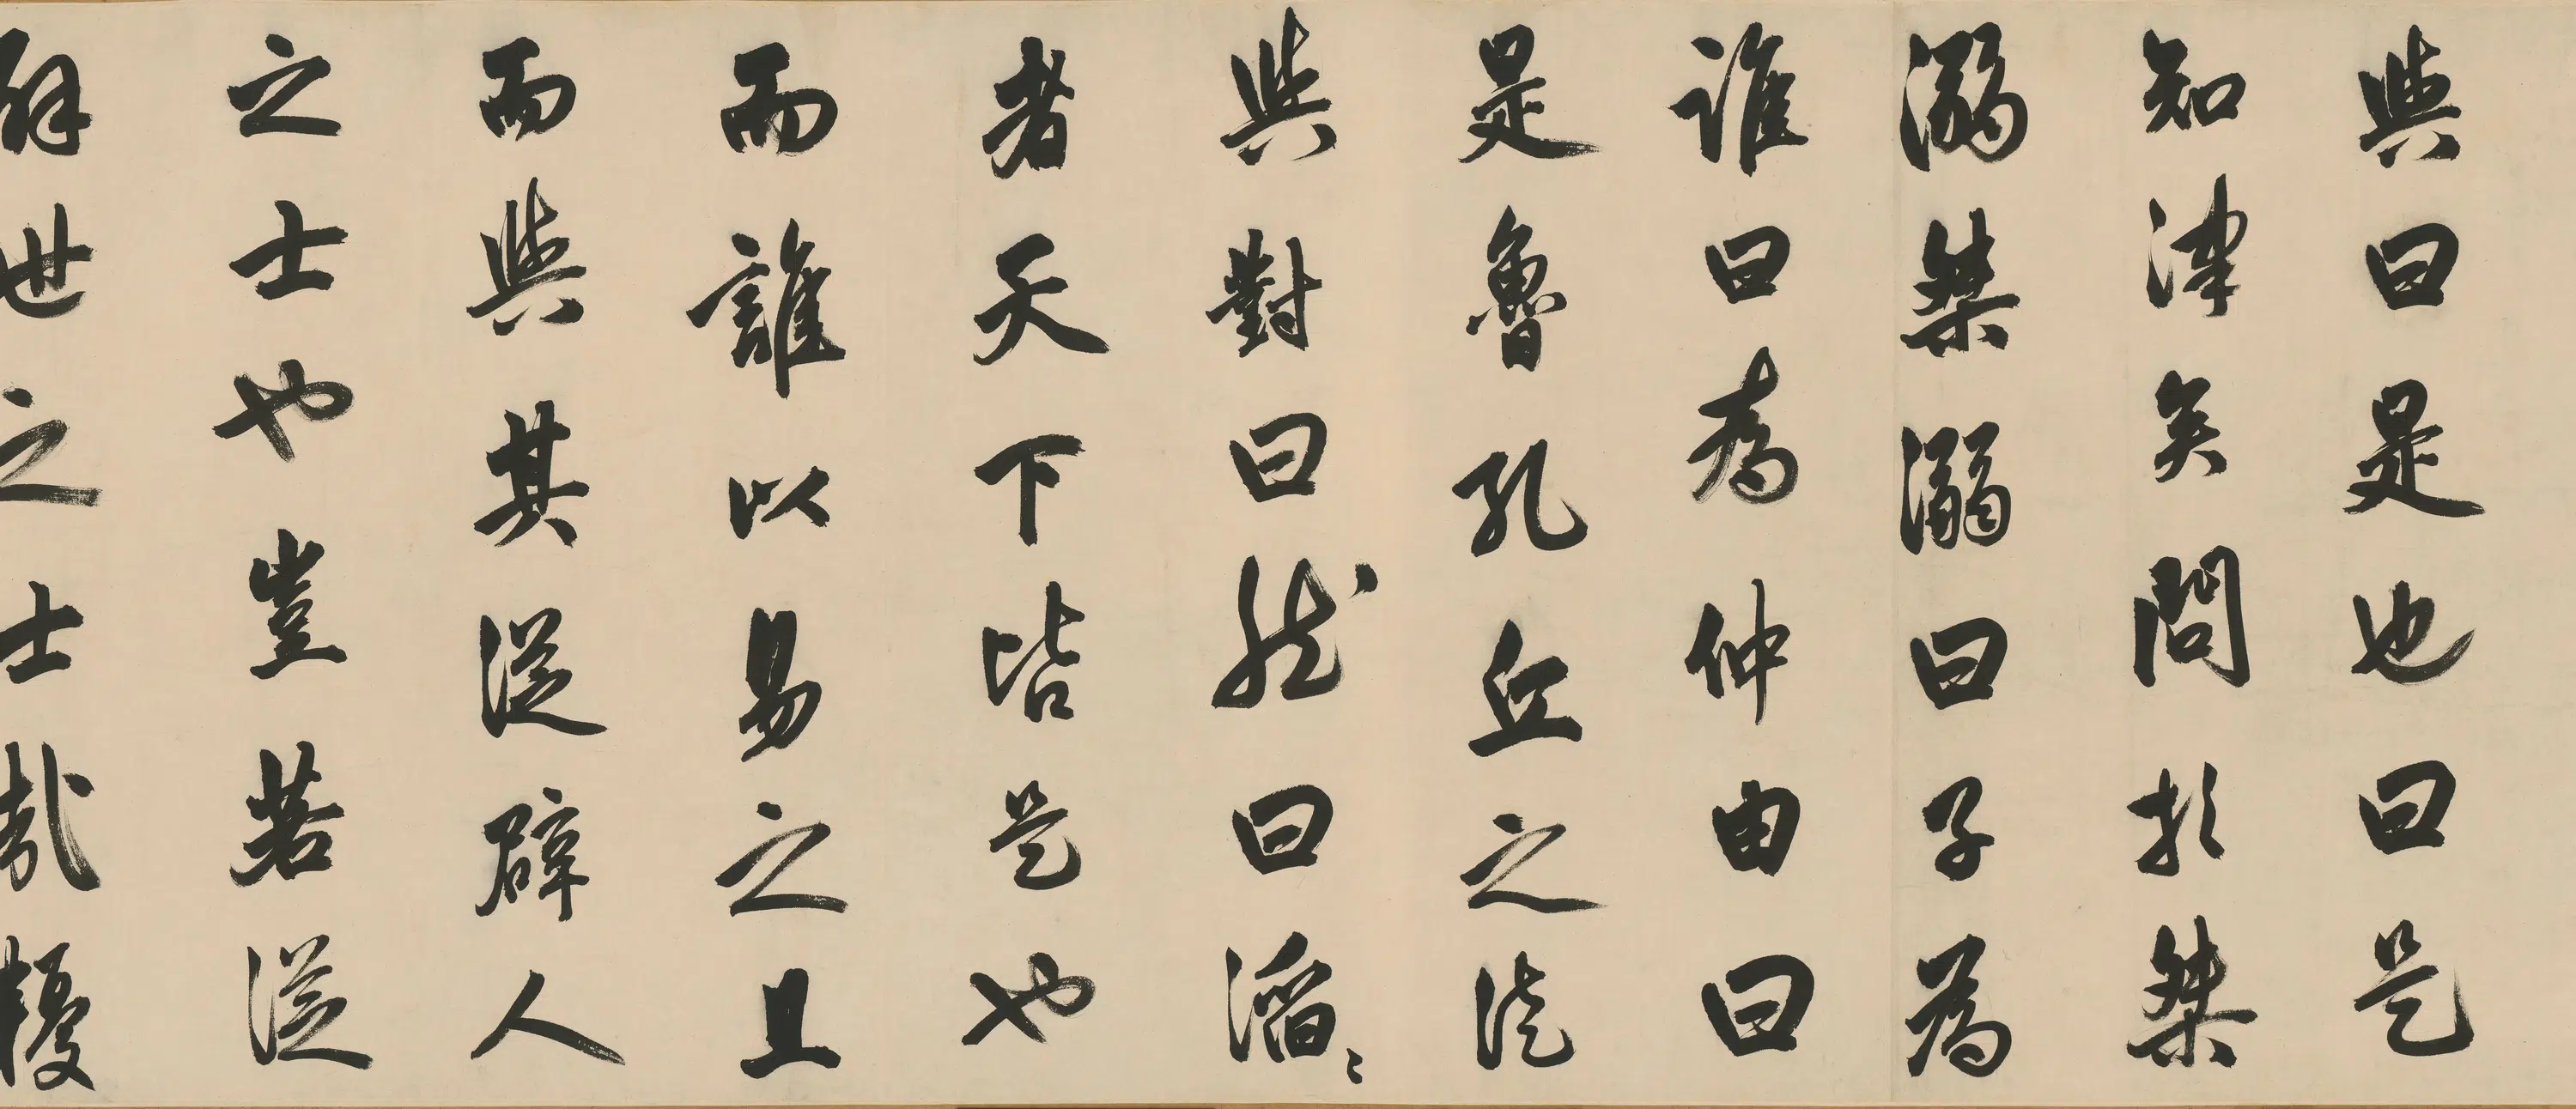 與曰是也曰是
知津矣問於桀
溺桀溺曰子為
誰曰為仲由曰
是魯孔丘之徒
與對曰然曰滔〻
者天下皆是也
而誰以易之且
而與其從辟人
之士也豈若從
辟世之士哉耰